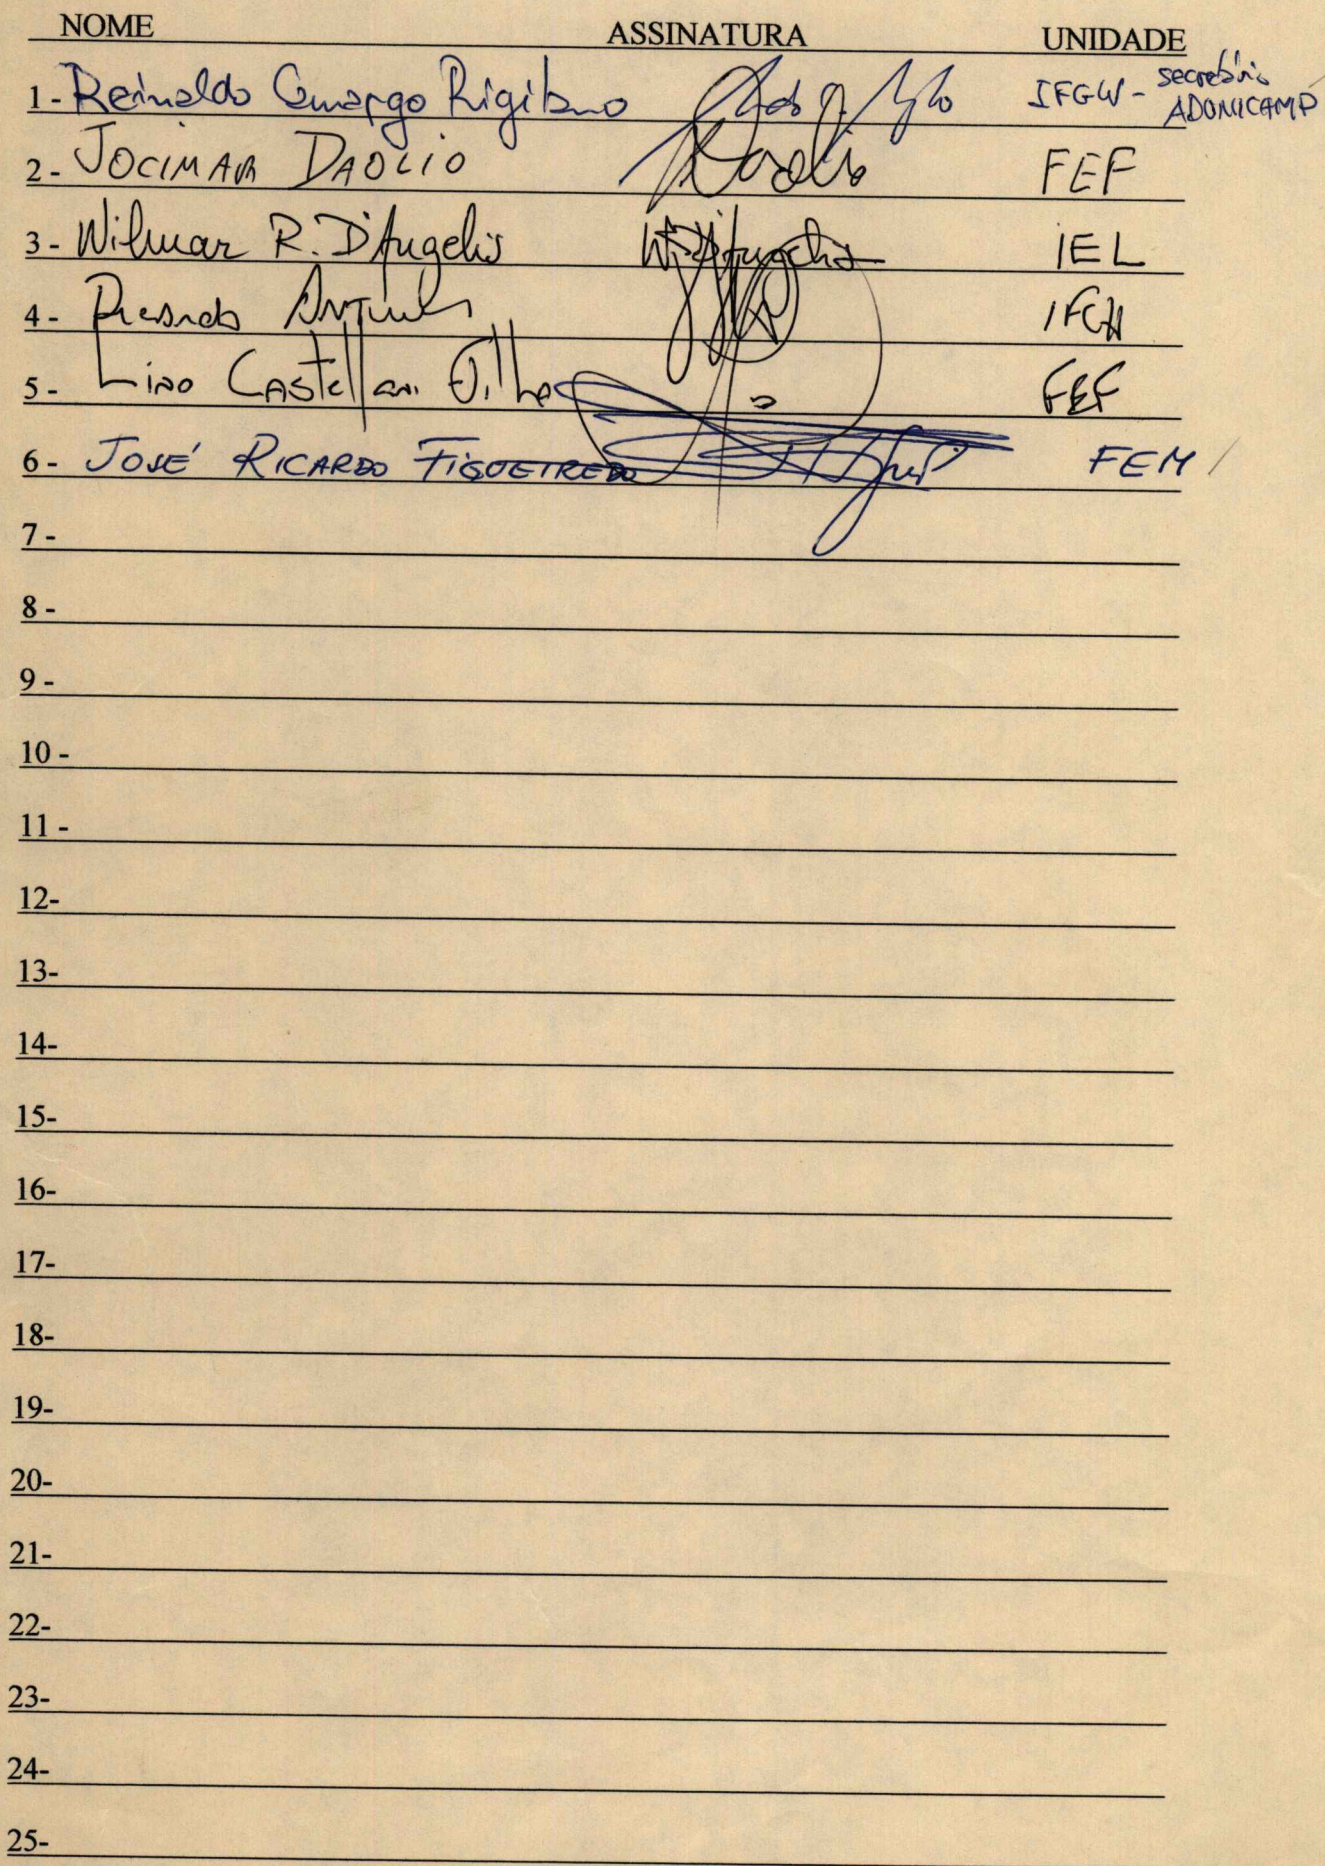 NOME ASSINATURA UNIDADE
1- Reinaldo Camargo Rigitano IFGW - secretário ADUNICAMP
2- JOCIMAR DAOLIO Daolio FEF
3- Wilmar R. D'Angelis W. D'Angelis IEL
4- Ricardo Antunes IFCH
5- Lino Castellani Filho FEF
6- JOSÉ RICARDO FIGUEIREDO FEM
7-
8-
9-
10-
11-
12-
13-
14-
15-
16-
17-
18-
19-
20-
21-
22-
23-
24-
25-